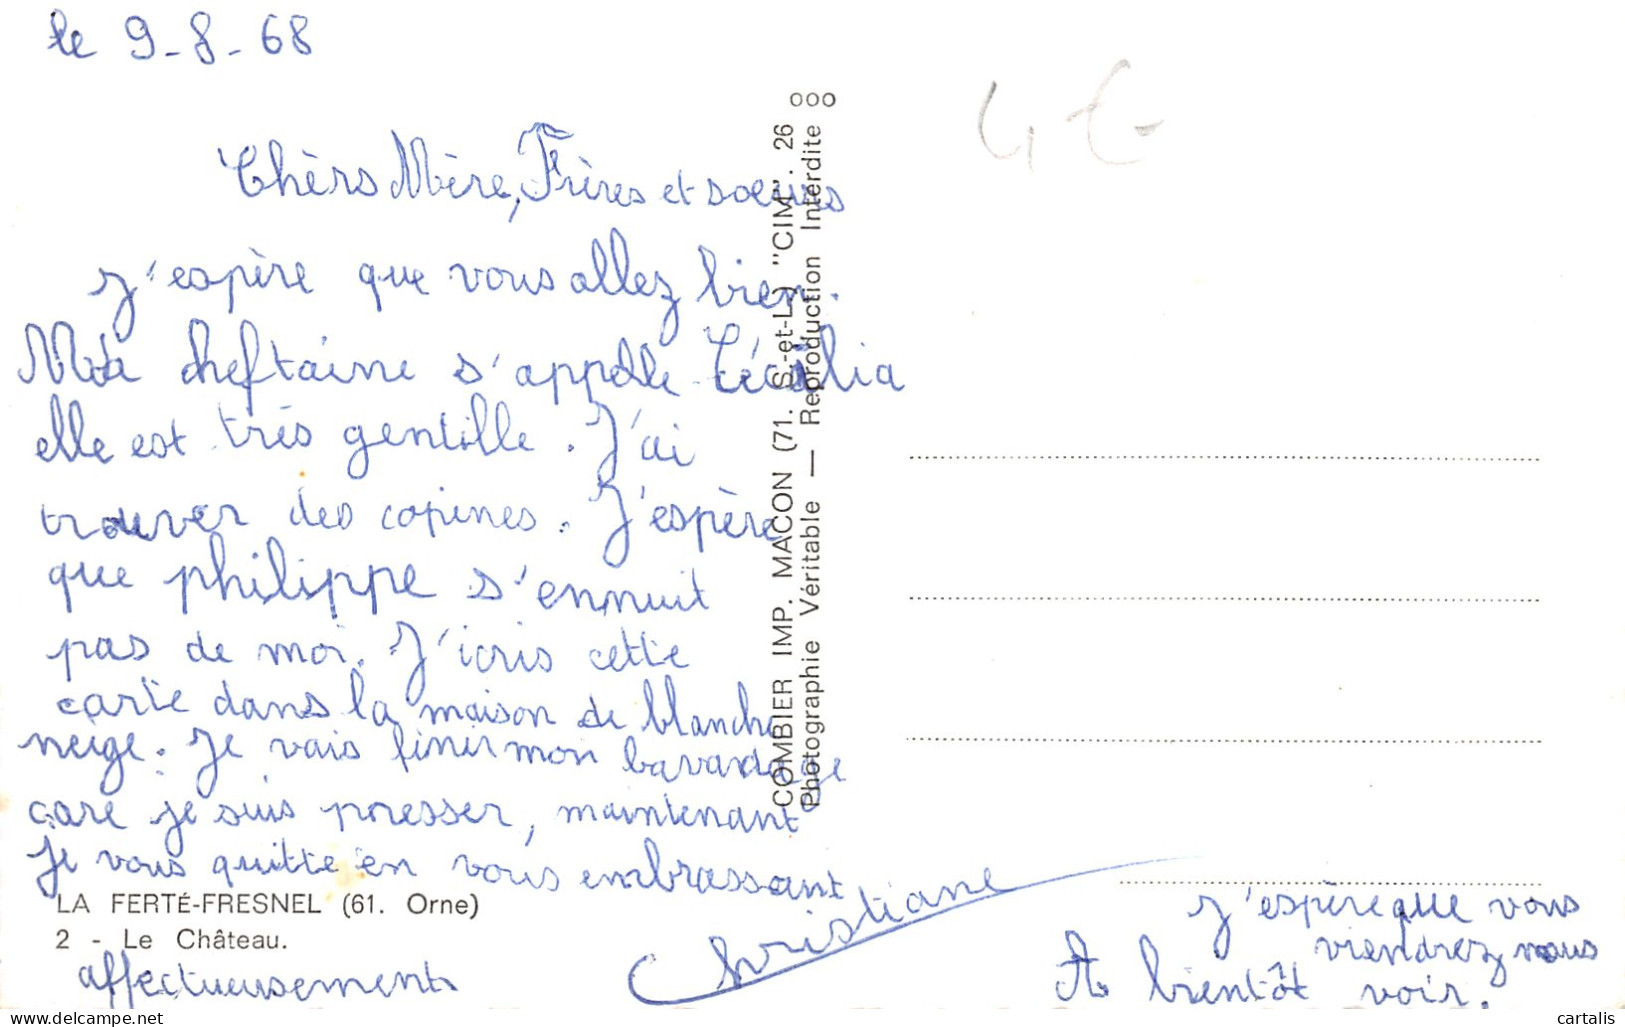 le 9-8-68
4 €-
Chèrs Mère, Frères et soeurs
J'espère que vous allez bien.
Ma cheftaine s'appelle Cécilia
elle est très gentille. J'ai
trouver des copines. J'espère
que philippe s'ennuit
pas de moi. J'icris cette
carte dans la maison de blanche
neige. Je vais finir mon bavardage
care je suis presser, maintenant
Je vous quitte en vous embrassant
LA FERTÉ-FRESNEL (61. Orne)
2 - Le Château.
affectueusements
Christiane
COMBIER IMP. MACON (71. S.-et-L.) "CIM". 26
Photographie Véritable — Reproduction Interdite
000
J'espère que vous
viendrez nous
voir.
A bientôt
delcampe.net
cartalis